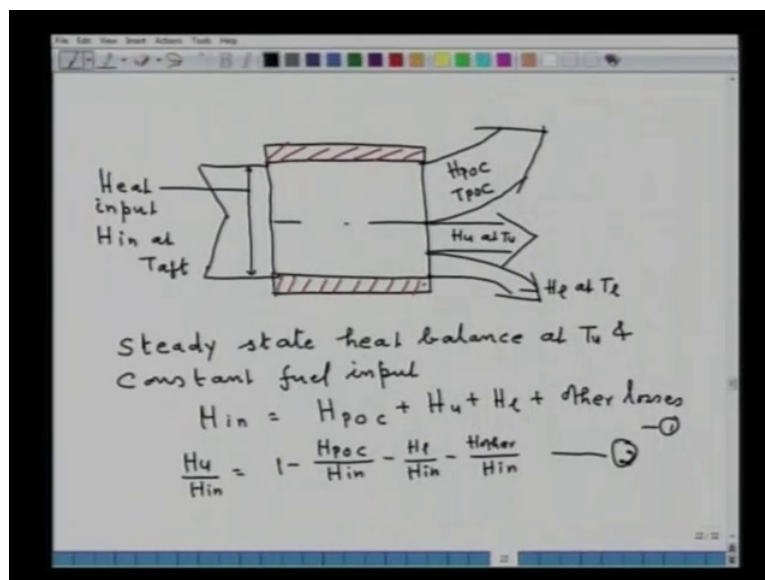 File Edit View Insert Actions Tools Help
Heat
input
Hin at
Taft
HPOC
TPOC
Hu at Tu
Hl at Tl
Steady state heat balance at Tu &
Constant fuel input
Hin = HPOC + Hu + Hl + other losses
-①
Hu/Hin = 1 - HPOC/Hin - Hl/Hin - Hother/Hin — ②
22 / 32
22